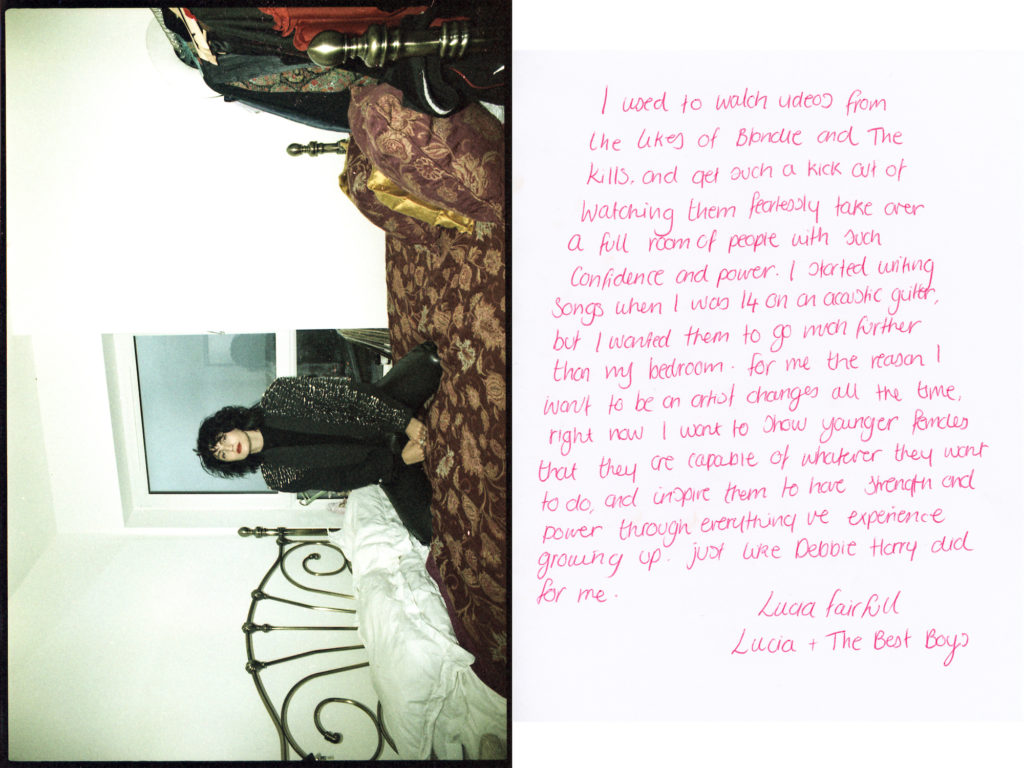 I used to watch videos from
the likes of Blondie and The
Kills, and get such a kick out of
watching them fearlessly take over
a full room of people with such
confidence and power. I started writing
songs when I was 14 on an acoustic guitar,
but I wanted them to go much further
than my bedroom. for me the reason I
want to be an artist changes all the time,
right now I want to show younger females
that they are capable of whatever they want
to do, and inspire them to have strength and
power through everything we experience
growing up. just like Debbie Harry did
for me.
Lucia Fairfull
Lucia + The Best Boys